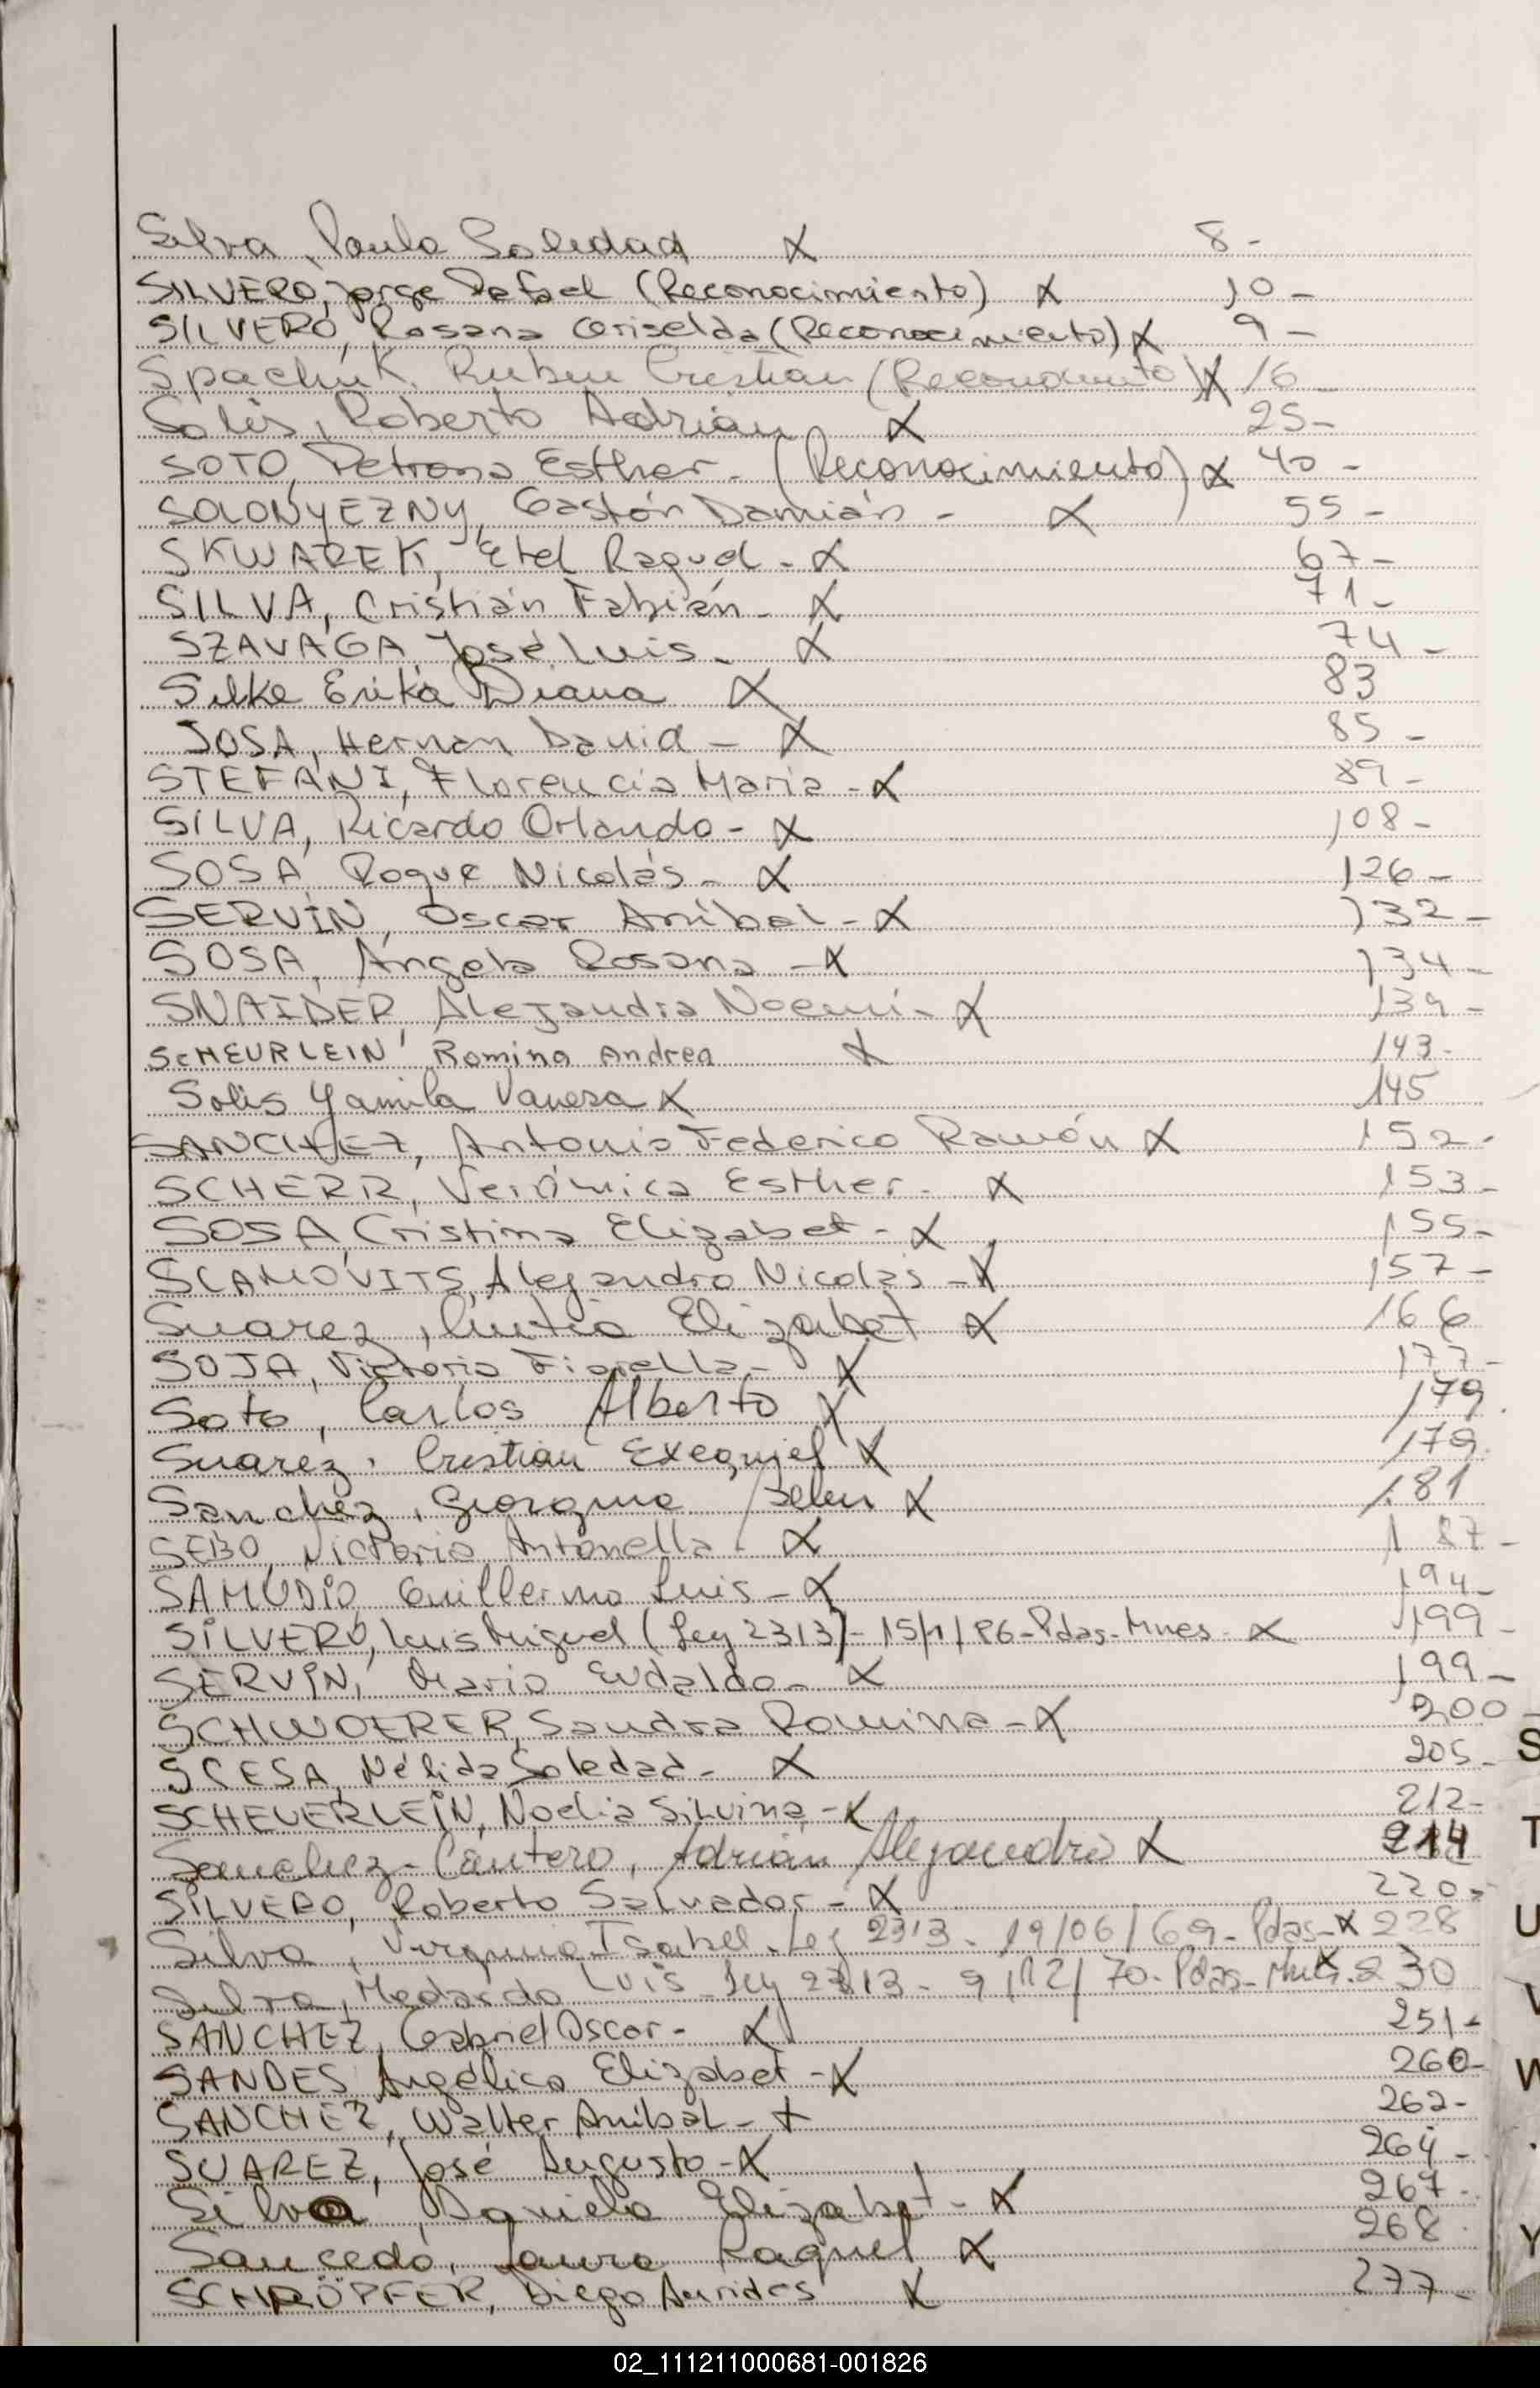 Silva, Paula Soledad X 8-
SILVERO, Jorge Rafael (Reconocimiento) X 10-
SILVERO, Rosana Griselda (Reconocimiento) X 9-
Spachuk, Ruben Cristian (Reconocimiento) X 16-
Solis, Roberto Adrián X 25-
SOTO, Petrona Esther- (Reconocimiento) X 40-
SOLONYEZNY, Gastón Damián- X 55-
SKWAREK, Etel Raquel- X 67-
SILVA, Cristián Fabián- X 71-
SZAVAGA, José Luis- X 74-
Silke Erika Diana X 83
SOSA, Hernan David- X 85-
STEFANI, Florencia Maria- X 89-
SILVA, Ricardo Orlando- X 108-
SOSA, Roque Nicolás- X 126-
SERVIN, Oscar Anibal- X 132-
SOSA, Angela Rosana- X 134-
SNAIDER, Alejandra Noemí- X 139-
SCHEURLEIN, Romina Andrea X 143-
Solis Yamila Vanesa X 145
SANCHEZ, Antonio Federico Ramón X 152-
SCHERR, Verónica Esther- X 153-
SOSA, Cristina Elizabet- X 155-
SCAMOVITS, Alejandro Nicolás- X 157-
Suarez, Cintia Elizabet X 166
SOJA, Victoria Fiorella- X 177-
Soto, Carlos Alberto X 179
Suarez, Cristian Exequiel X 179
Sanchez, Georgina Belen X 181
SEBO, Victoria Antonella X 187-
SAMUDIO, Guillermo Luis- X 194-
SILVERO, Luis Miguel (Ley 2313)- 15/1/86-Pdas-Mnes- X 199-
SERVIN, Mario Eudaldo- X 199-
SCHWOERER, Sandra Romina- X 200
SCESA, Nélida Soledad- X 205-
SCHEUERLEIN, Noelia Silvina- X 212-
Sanchez-Cantero, Adrián Alejandro X 214
SILVERO, Roberto Salvador- X 220-
Silva, Virginia Isabel- Ley 2313- 19/06/69- Pdas- X 228
Silva, Medardo Luis- Ley 2313- 9/12/70- Pdas- Mnes. X 230
SANCHEZ, Gabriel Oscar- X 251-
SANDES Angélica Elizabet- X 260-
SANCHEZ, Walter Anibal- X 262-
SUAREZ, José Augusto- X 264-
Silva, Daniela Elizabet- X 267-
Saucedo, Laura Raquel X 268
SCHRÖPFER, Diego X 277-
S
T
U
V
W
Y
02_111211000681-001826